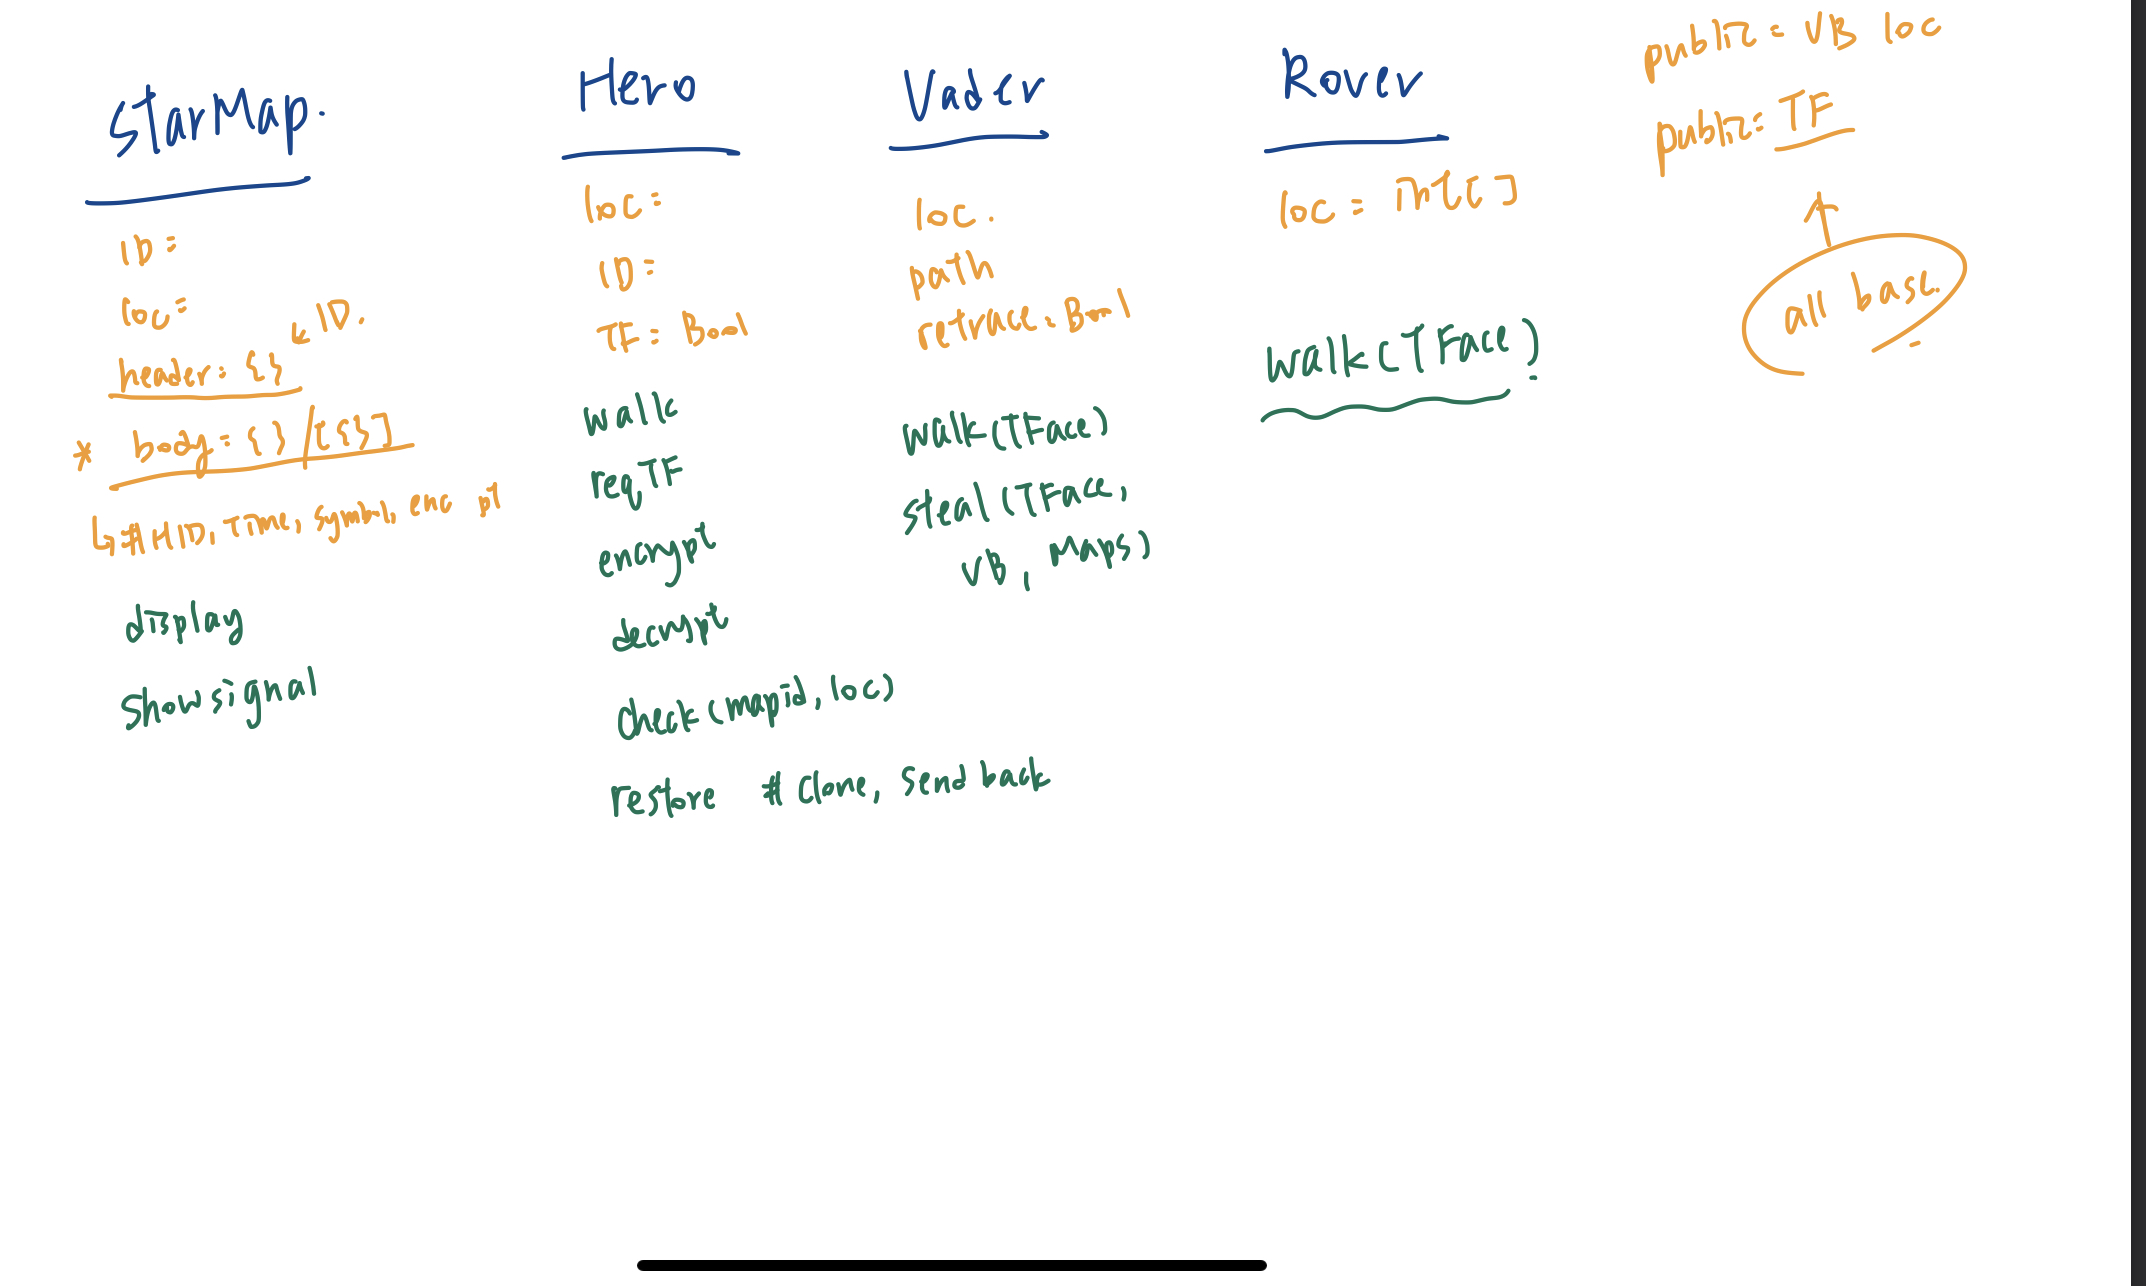 StarMap.
ID=
loc=
header= {} ↙ ID.
* body= {} / [{}]
↳ #HID, Time, symbol, enc pt
display
showsignal
Hero
loc=
ID=
TF= Bool
walk
req,TF
encrypt
decrypt
check(mapid, loc)
restore # Clone, send back
Vader
loc.
path
retrace= Bool
walk(TFace)
steal(TFace,
VB, Maps)
Rover
loc = int[]
walk(TFace)
public = VB loc
public= TF
↑
all base.